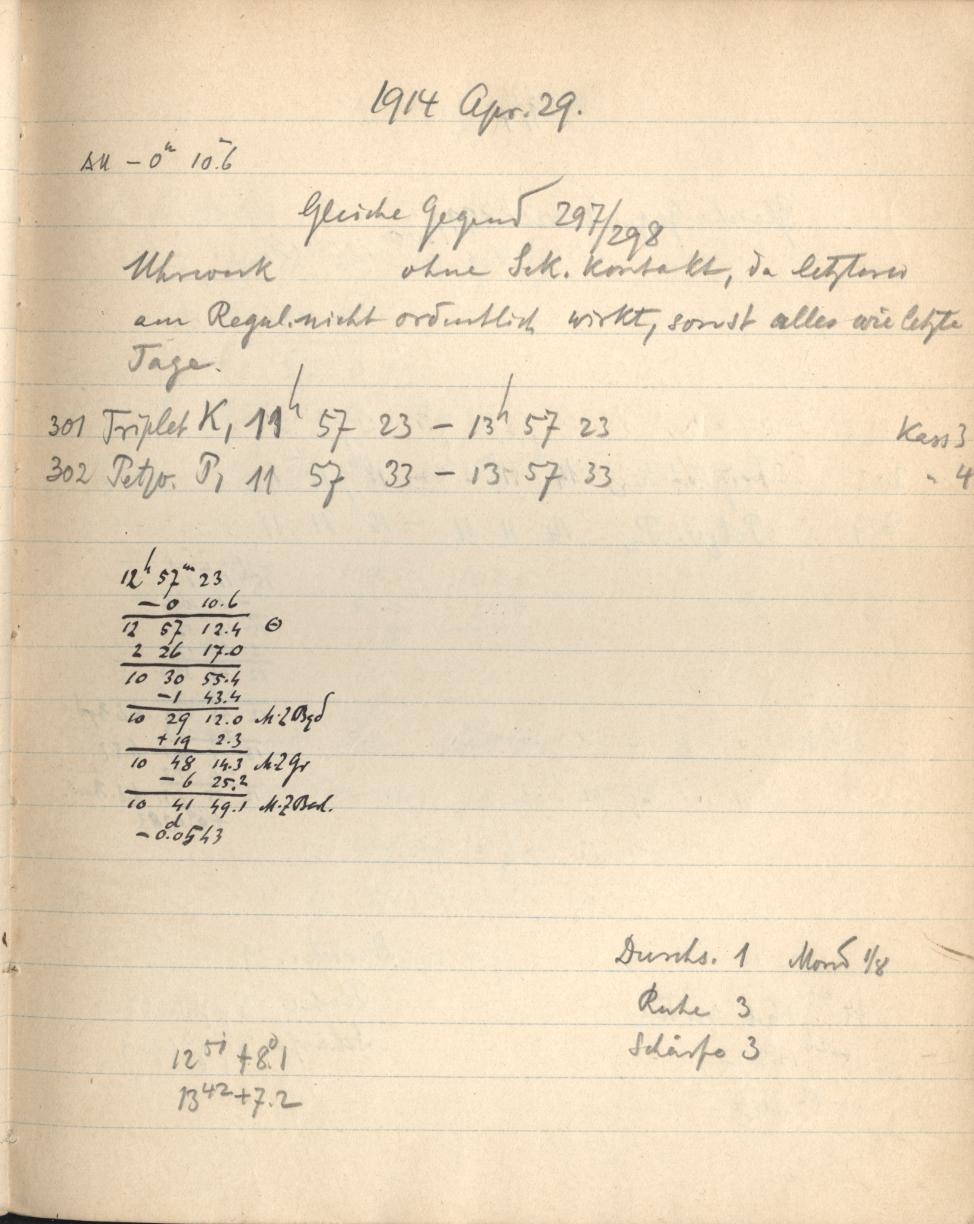 1914 Apr. 29.
ΔU − 0ᵐ 10.6
Gleiche Gegend 297/298
Uhrwerk ohne Sek. Kontakt, da letzterer
am Regul. nicht ordentlich wirkt, sonst alles wie letzte
Tage.
301 Triplet K, 11ʰ 57 23 − 13ʰ 57 23 Kass 3
302 Petzv. P, 11 57 33 − 13 57 33 " 4
12ʰ 57ᵐ 23
− 0 10.6
12 57 12.4 Θ
2 26 17.0
10 30 55.4
−1 43.4
10 29 12.0 M.Z Bgd
+19 2.3
10 48 14.3 M.Z Gr
− 6 25.2
10 41 49.1 M.Z
−0ᵈ.0543
Durchs. 1 Mond 1/8
Ruhe 3
Schärfe 3
12⁵¹ +8°.1
13⁴² +7.2